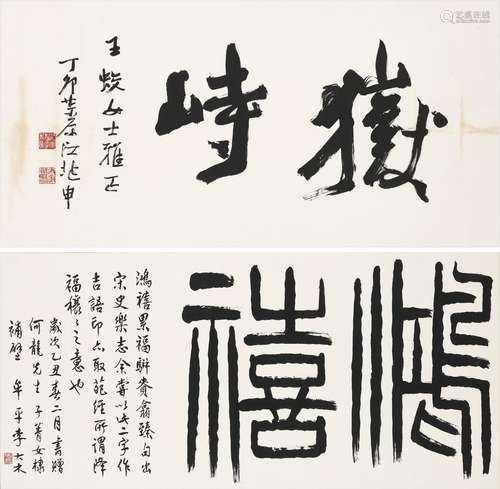 嶽峙
王女士雅正
丁卯茮原江兆申
鴻禧
鴻禧累福駢貴翕臻句出
宋史樂志余嘗以此二字作
吉語印亦取葩經所謂降
福穰〻之意也
歲次乙丑春二月書贈
何龍先生子菁女棣
補壁 牟平李大木
艺狐在线